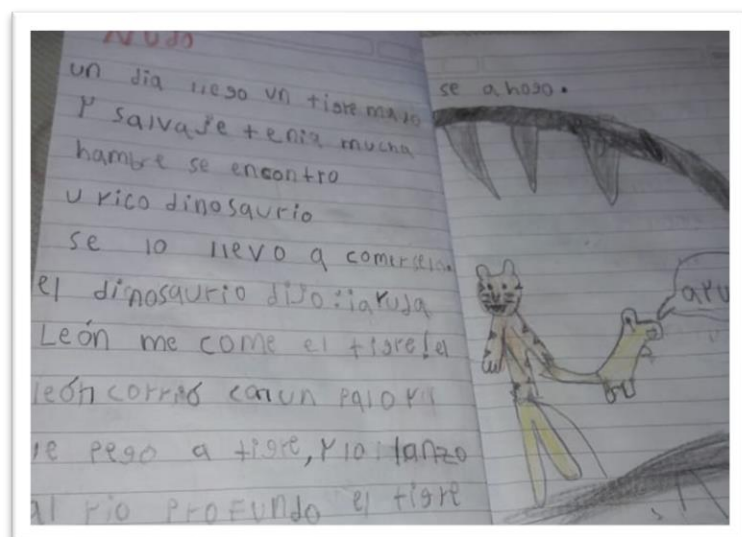 Nudo
un dia llego un tigre malo
y salvaje tenia mucha
hambre se encontro
u rico dinosaurio
se lo llevo a comerselo.
el dinosaurio dijo ¡¡ayuda
León me come el tigre! el
león corrió con un palo y
le pego a tigre, y lo lanzo
al rio profundo el tigre
se ahogo.
ayu